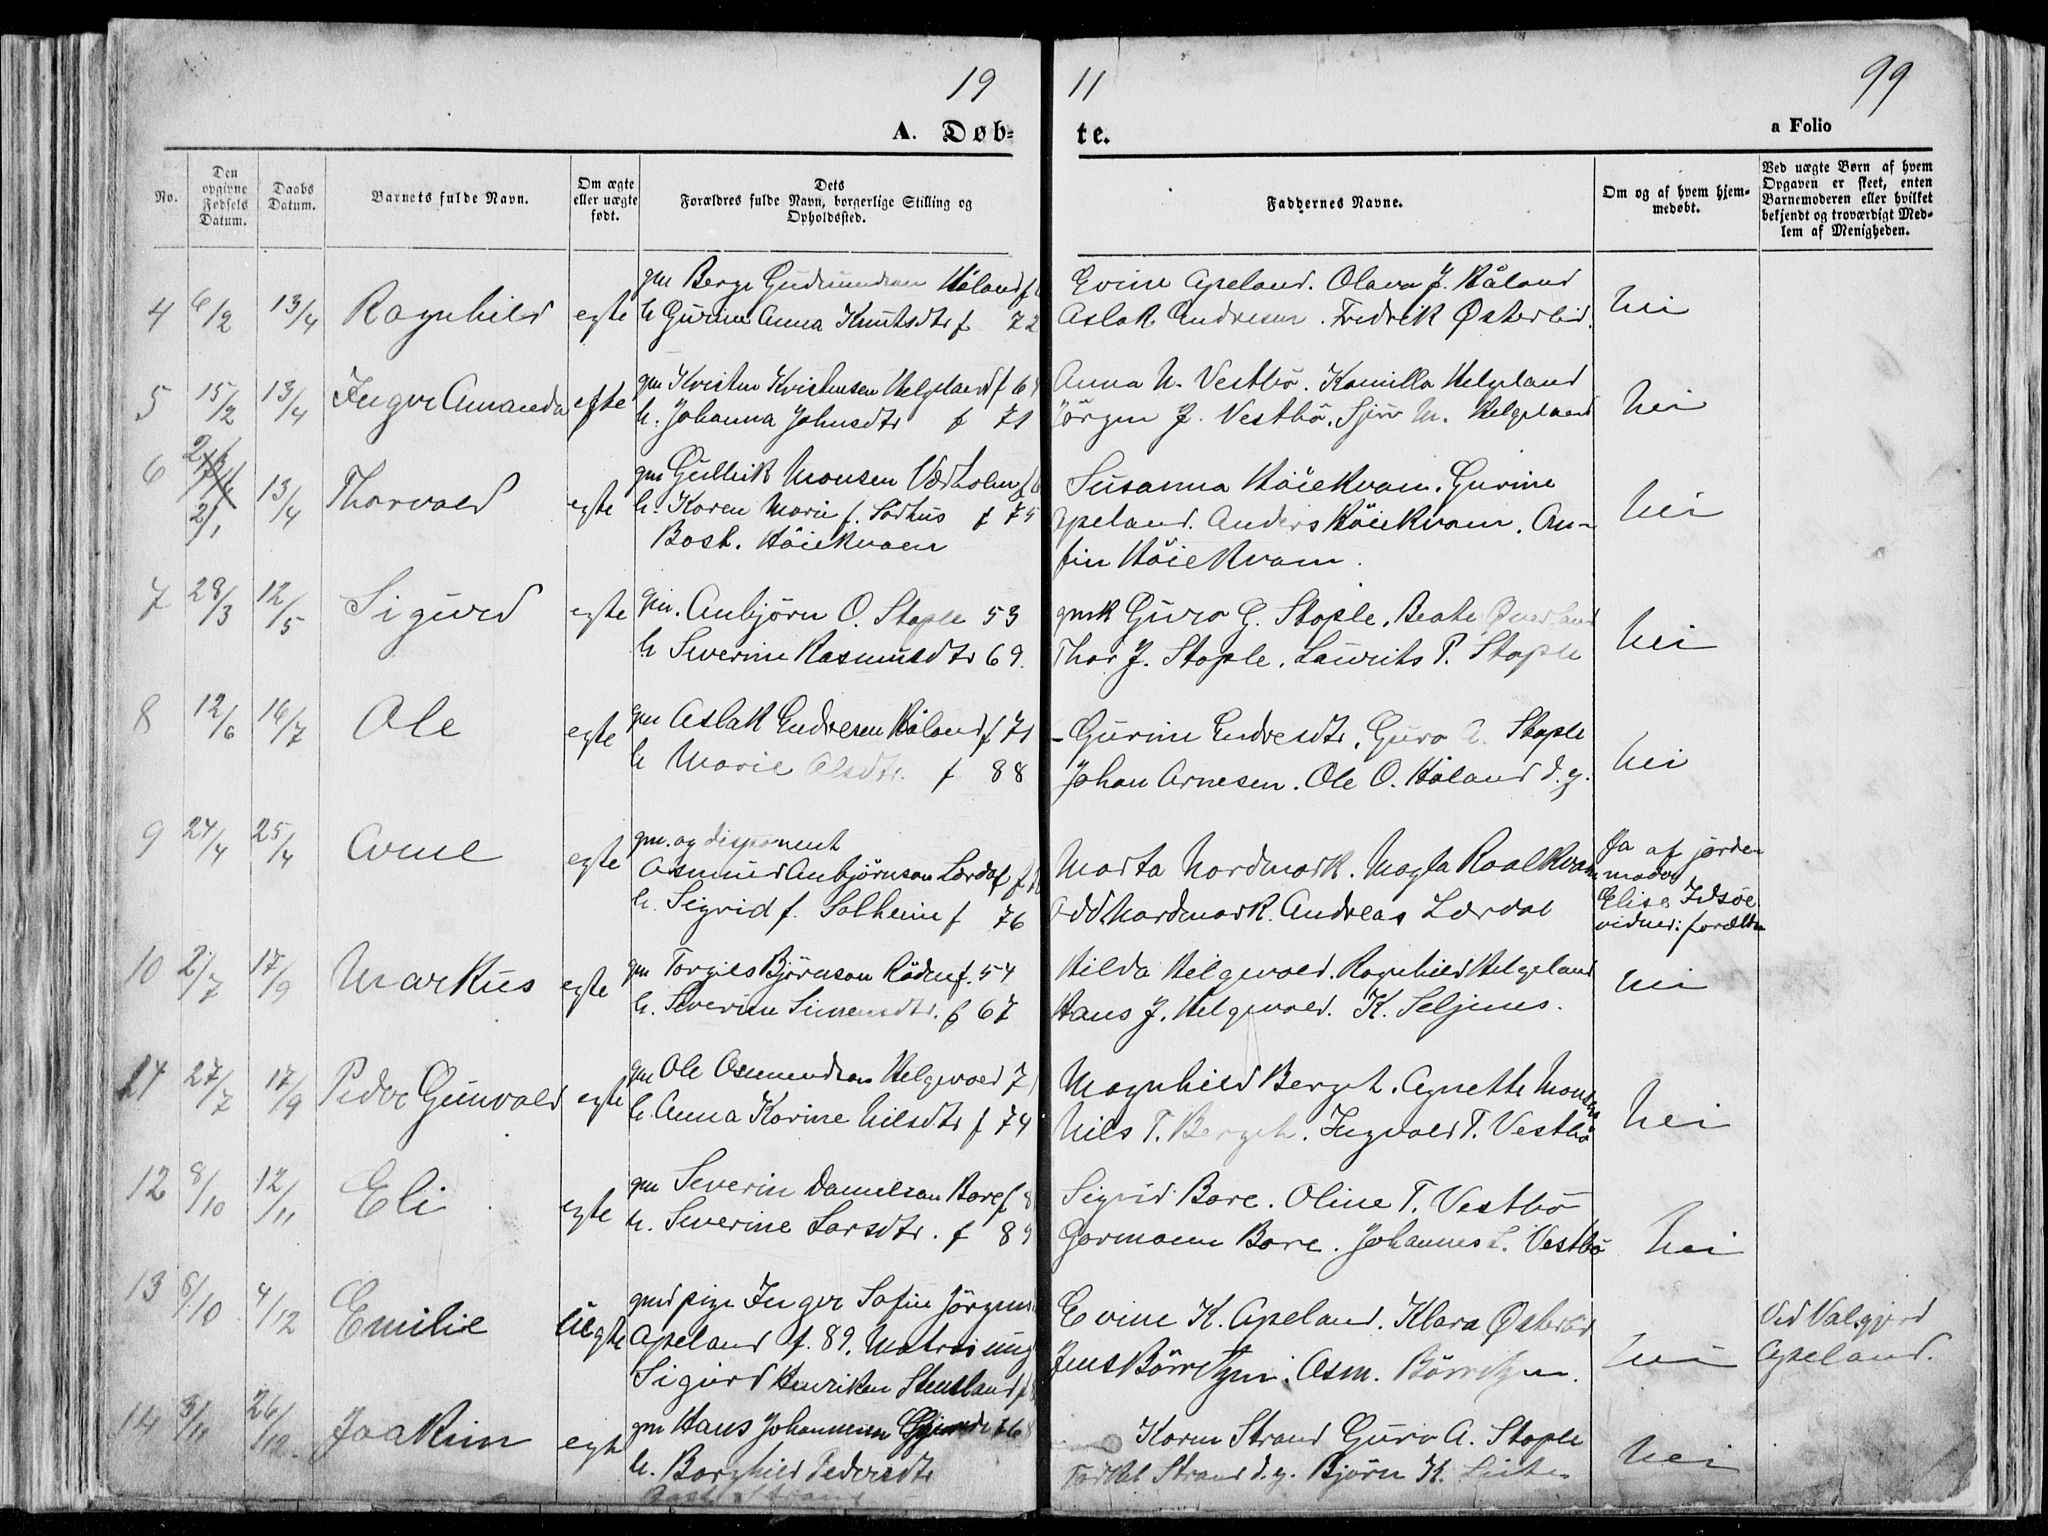 19 11 99
A. Døb- te. a Folio
No.
Den opgivne Fødsels Datum.
Daabs Datum.
Barnets fulde Navn.
Om ægte eller uægte født.
Dets
Forældres fulde Navn, borgerlige Stilling og
Opholdssted.
Faddernes Navne.
Om og af hvem hjem-
medøbt.
Ved uægte Børn af hvem
Opgaven er skeet, enten
Barnemoderen eller hvilket
bekjendt og troværdigt Med-
lem af Menigheden.
4 6/2 13/4 Ragnhild egte
gm Berge Gudmundsen Håland f
h Gurine Anna Knutsdtr f 72
Evine Apeland. Olava J. Håland
Aslak Endresen. Fredrik Østerlid.
nei
5 15/2 13/4 Inger Amanda egte
gm Kristen Kristensen Helgeland f 6
h. Johanna Johnsdtr f 71
Anna N. Vestbö. Kamilla Helgeland
Jörgen J. Vestbö. Sjur M. Helgeland
nei
6 2/1 13/4 Thorvald egte
gm Gullik Monsen Vedholm f
h. Karen Marie f. Sørhus f 75
Bosh. Höiekvam
Susanna Höiekvam. Gurine
Apeland. Anders Höiekvam. An-
fin Höiekvam.
nei
7 28/3 12/5 Sigurd egte
gm. Anbjörn O. Stople 53
h Severine Rasmusdtr 69.
gmk Guro G. Stople. Beate Øverland
Thor J. Stople. Laurits P. Stople
nei
8 12/6 16/7 Ole egte
gm Aslak Endresen Håland f 71
h Marie Olsdtr. f 88
- Gurine Endresdtr. Guro A. Stople
Johan Arnesen. Ole O. Håland d.y.
nei
9 24/4 25/4 Arne egte
gm. og disponent
Asmund Anbjörnson Lærdal f
h. Sigrid f. Solheim f 76
Marta Nordmark. Magla Roalkvam
Odd Nordmark. Andreas Lærdal
Ja af jorde-
moder
Elise Idsøe
vidner: forældre
10 2/7 17/9 Markus egte
gm Torgils Björnson Röden f. 54
h. Severine Simensdtr. f 67
Hilda Helgevold. Ragnhild Helgeland
Hans J. Helgevold. K. Seljenes.
nei
11 27/7 17/9 Peder Gunvald egte
gm Ole Osmundsen Helgevold 7
h Anna Karine Nilsdtr f 74
Magnhild Bergeh. Agnethe Monsen
Nils T. Bergeh. Ingvald T. Vestbö
nei
12 8/10 12/11 Eli egte
gm Severin Danielsen Bore f 8
h. Severine Larsdtr. f 89
Sigrid Bore. Oline T. Vestbö
Gormann Bore. Johannes L. Vestbö
nei
13 6/10 4/12 Emilie uegte
gmd pige Inger Sofie Jörgens
Apeland f. 89. Matros ung
Sigurd Henriksen Stensland f
Evine K. Apeland. Klara Østerlid
Jens Börretzen. Asm. Börretzen.
nei
Ved Valgjerd
Apeland.
14 3/11 26/12. Joakim egte
gm Hans Johannesen f 6
h. Borghild Pedersdtr
Karen Strand Guro A. Stople
Torkel Strand d.y. Björn H.
nei